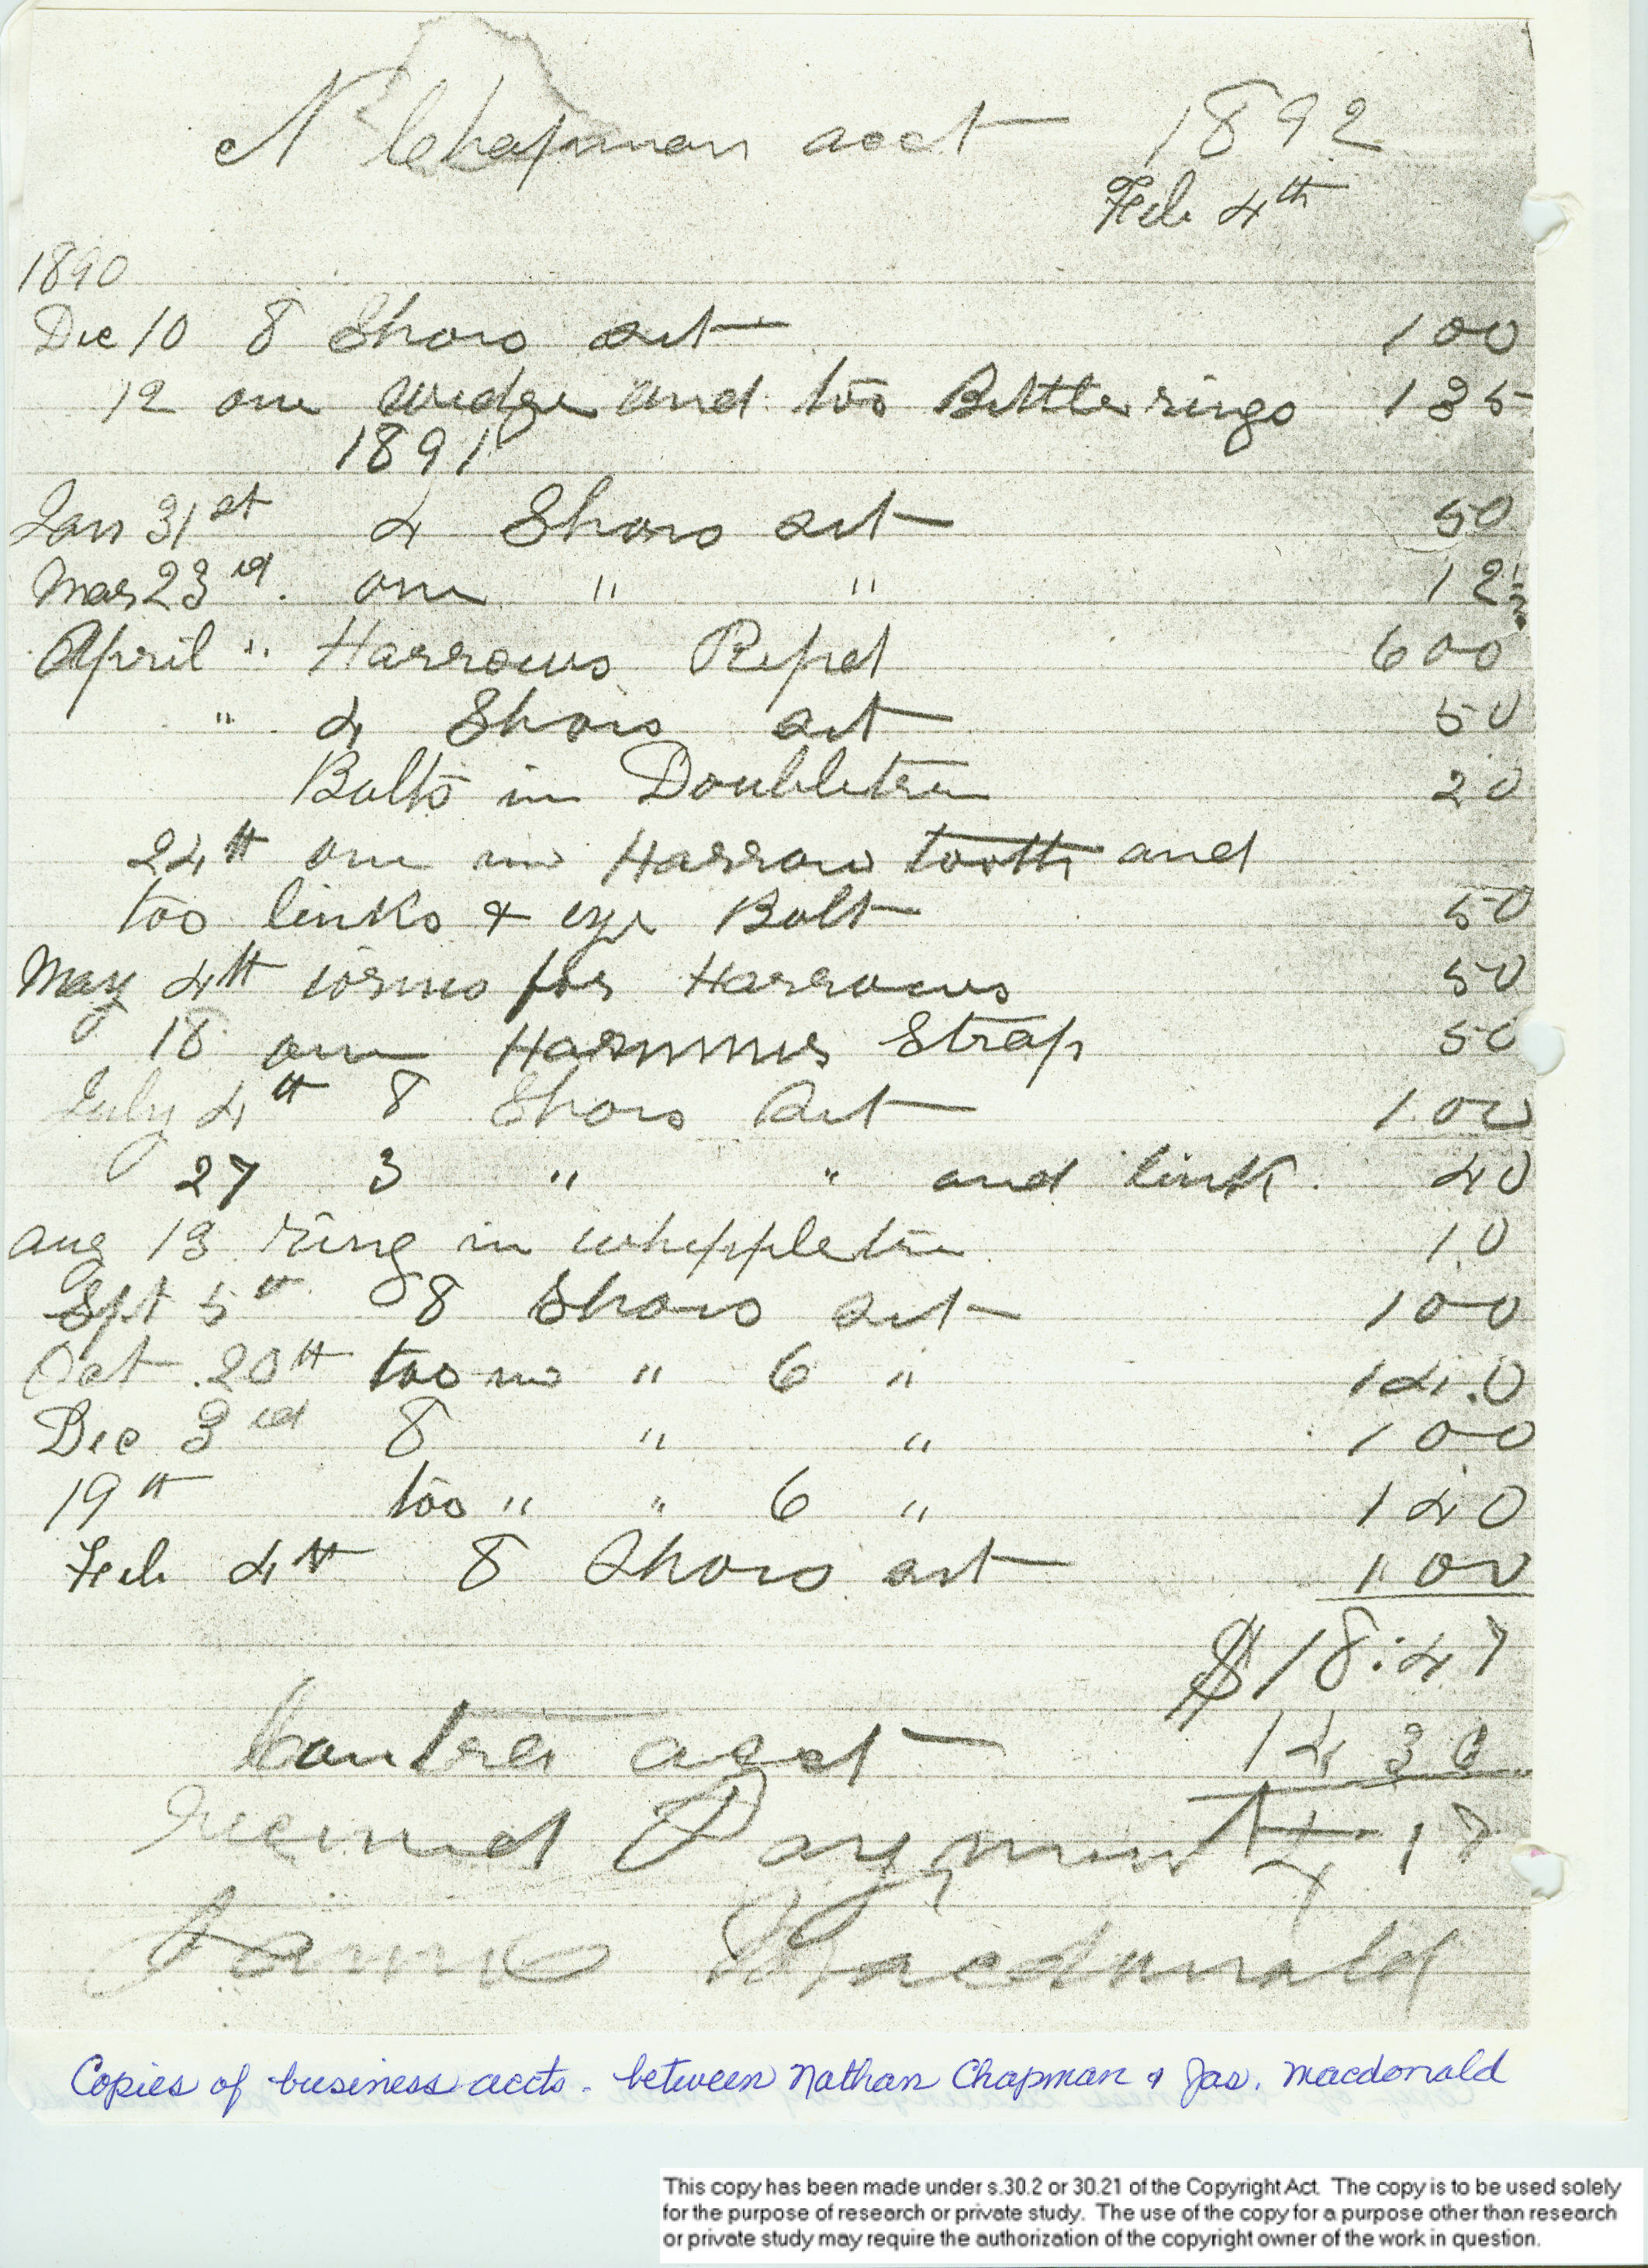 N Chapman acct 1892
Feb 4th
1890
Dec 10 8 Shoes set 100
12 one wedge and too Bettle rings 135
1891
Jan 31st 4 Shoes set 50
Mar 23rd. one " " 12½
April " Harrows Repd 600
" 4 Shoes set 50
Bolts in Doubletree 20
24th one nw Harrow tooth and
too links & eye Bolt 50
May 4th for Harrows 50
18 one Strap 50
July 4th 8 Shoes set 1.00
27 3 " " and link. 40
Aug 13 ring in whippletree 10
Spt 5th 8 Shoes set 100
Oct 20th too nw " 6 " 140
Dec 3rd 8 " " 100
19th too " " 6 " 140
Feb 4th 8 Shoes set 100
$18.47
Contra acct 14 30
Recived Payment 4.17
James Macdonald
Copies of business accts - between Nathan Chapman & Jas. Macdonald
This copy has been made under s.30.2 or 30.21 of the Copyright Act. The copy is to be used solely
for the purpose of research or private study. The use of the copy for a purpose other than research
or private study may require the authorization of the copyright owner of the work in question.